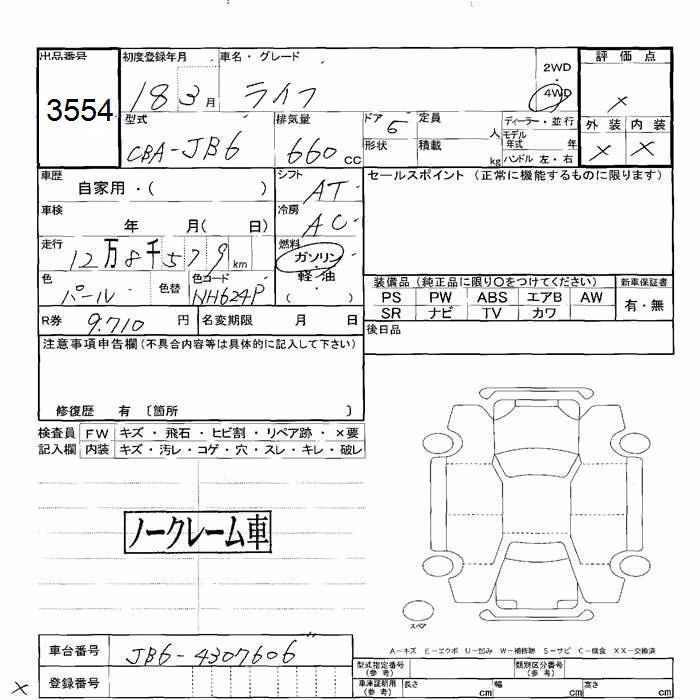 出品番号 初度登録年月 車名・グレード 評価点
3554 18 3月 ライフ 2WD ・ 4WD ×
型式 排気量 ドア 5 定員 人 ディーラー・並行 外装 内装
CBA-JB6 660cc 形状 積載 kg モデル年式 年 × ×
ハンドル 左・右
車歴 シフト セールスポイント (正常に機能するものに限ります)
自家用・( ) AT
車検 冷房
年 月( 日) AC
走行 燃料
12万8千579km ガソリン
色 色替 色コード 軽・油 装備品 (純正品に限り〇をつけてください) 新車保証書
パール NH624P ( ) PS PW ABS エアB AW 有・無
SR ナビ TV カワ
R券 9.710 円 名変期限 月 日 後日品
注意事項申告欄 (不具合内容等は具体的に記入して下さい)
修復歴 有 〔箇所 〕
検査員 FW キズ・飛石・ヒビ割・リペア跡・×要
記入欄 内装 キズ・汚レ・コゲ・穴・スレ・キレ・破レ
ノークレーム車
スペア
A-キズ E-エクボ U-凹み W-補修跡 S-サビ C-腐食 XX-交換済
車台番号 JB6-4307606 型式指定番号(参考) 類別区分番号(参考)
× 登録番号 車庫証明用(参考) 長さ cm 幅 cm 高さ cm